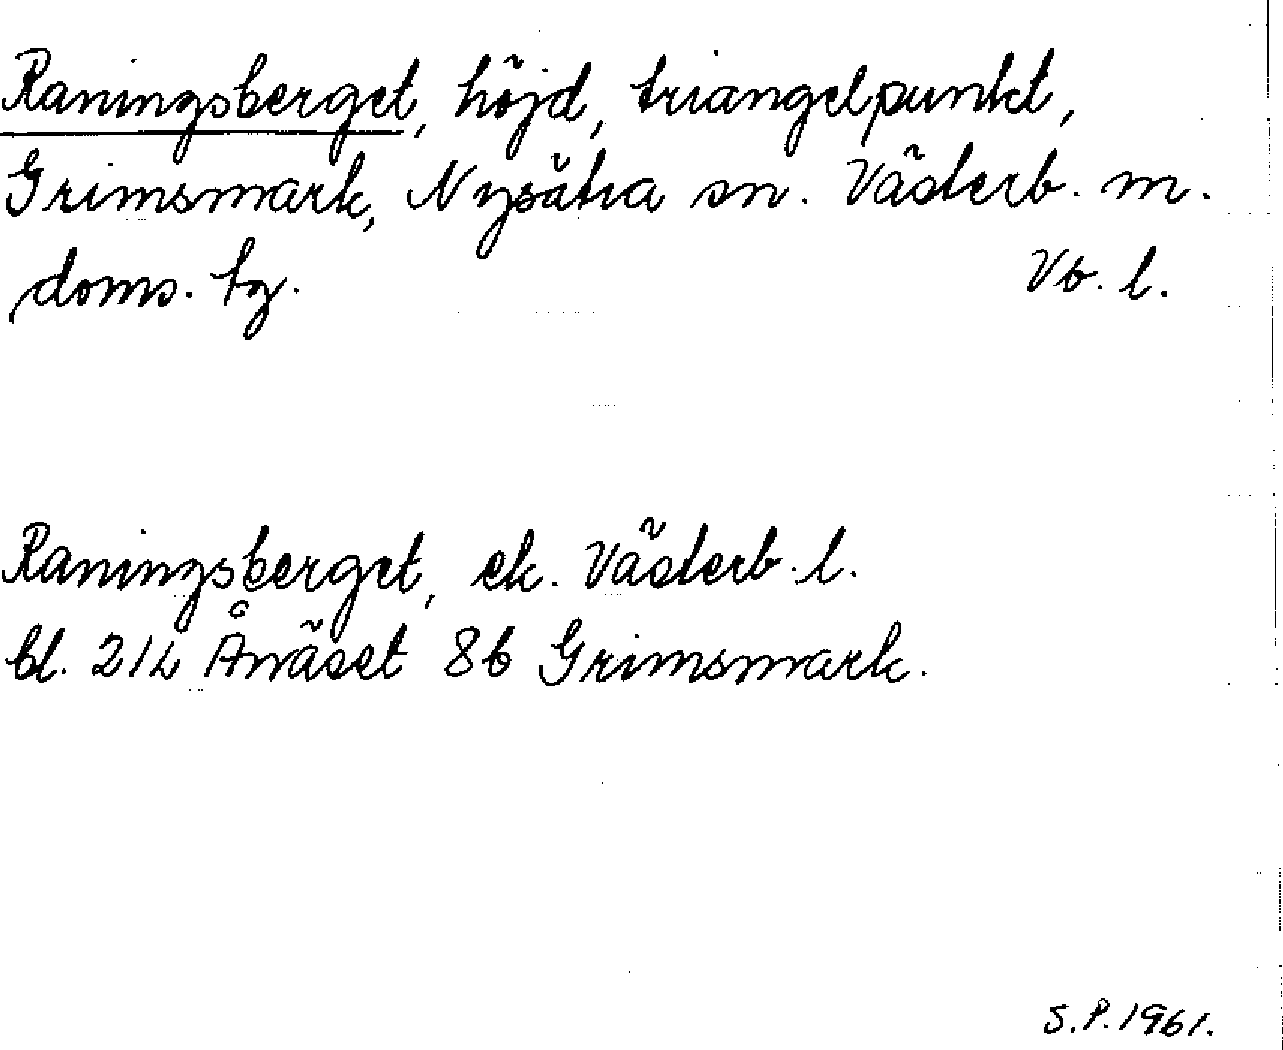 Raningsberget, höjd, triangelpunkt,
Grimsmark, Nysätra sn. Västerb. m.
doms. tg. Vb. l.
Raningsberget, ek. Västerb. l.
bl. 214 Ånäset 8b Grimsmark.
S.P. 1961.